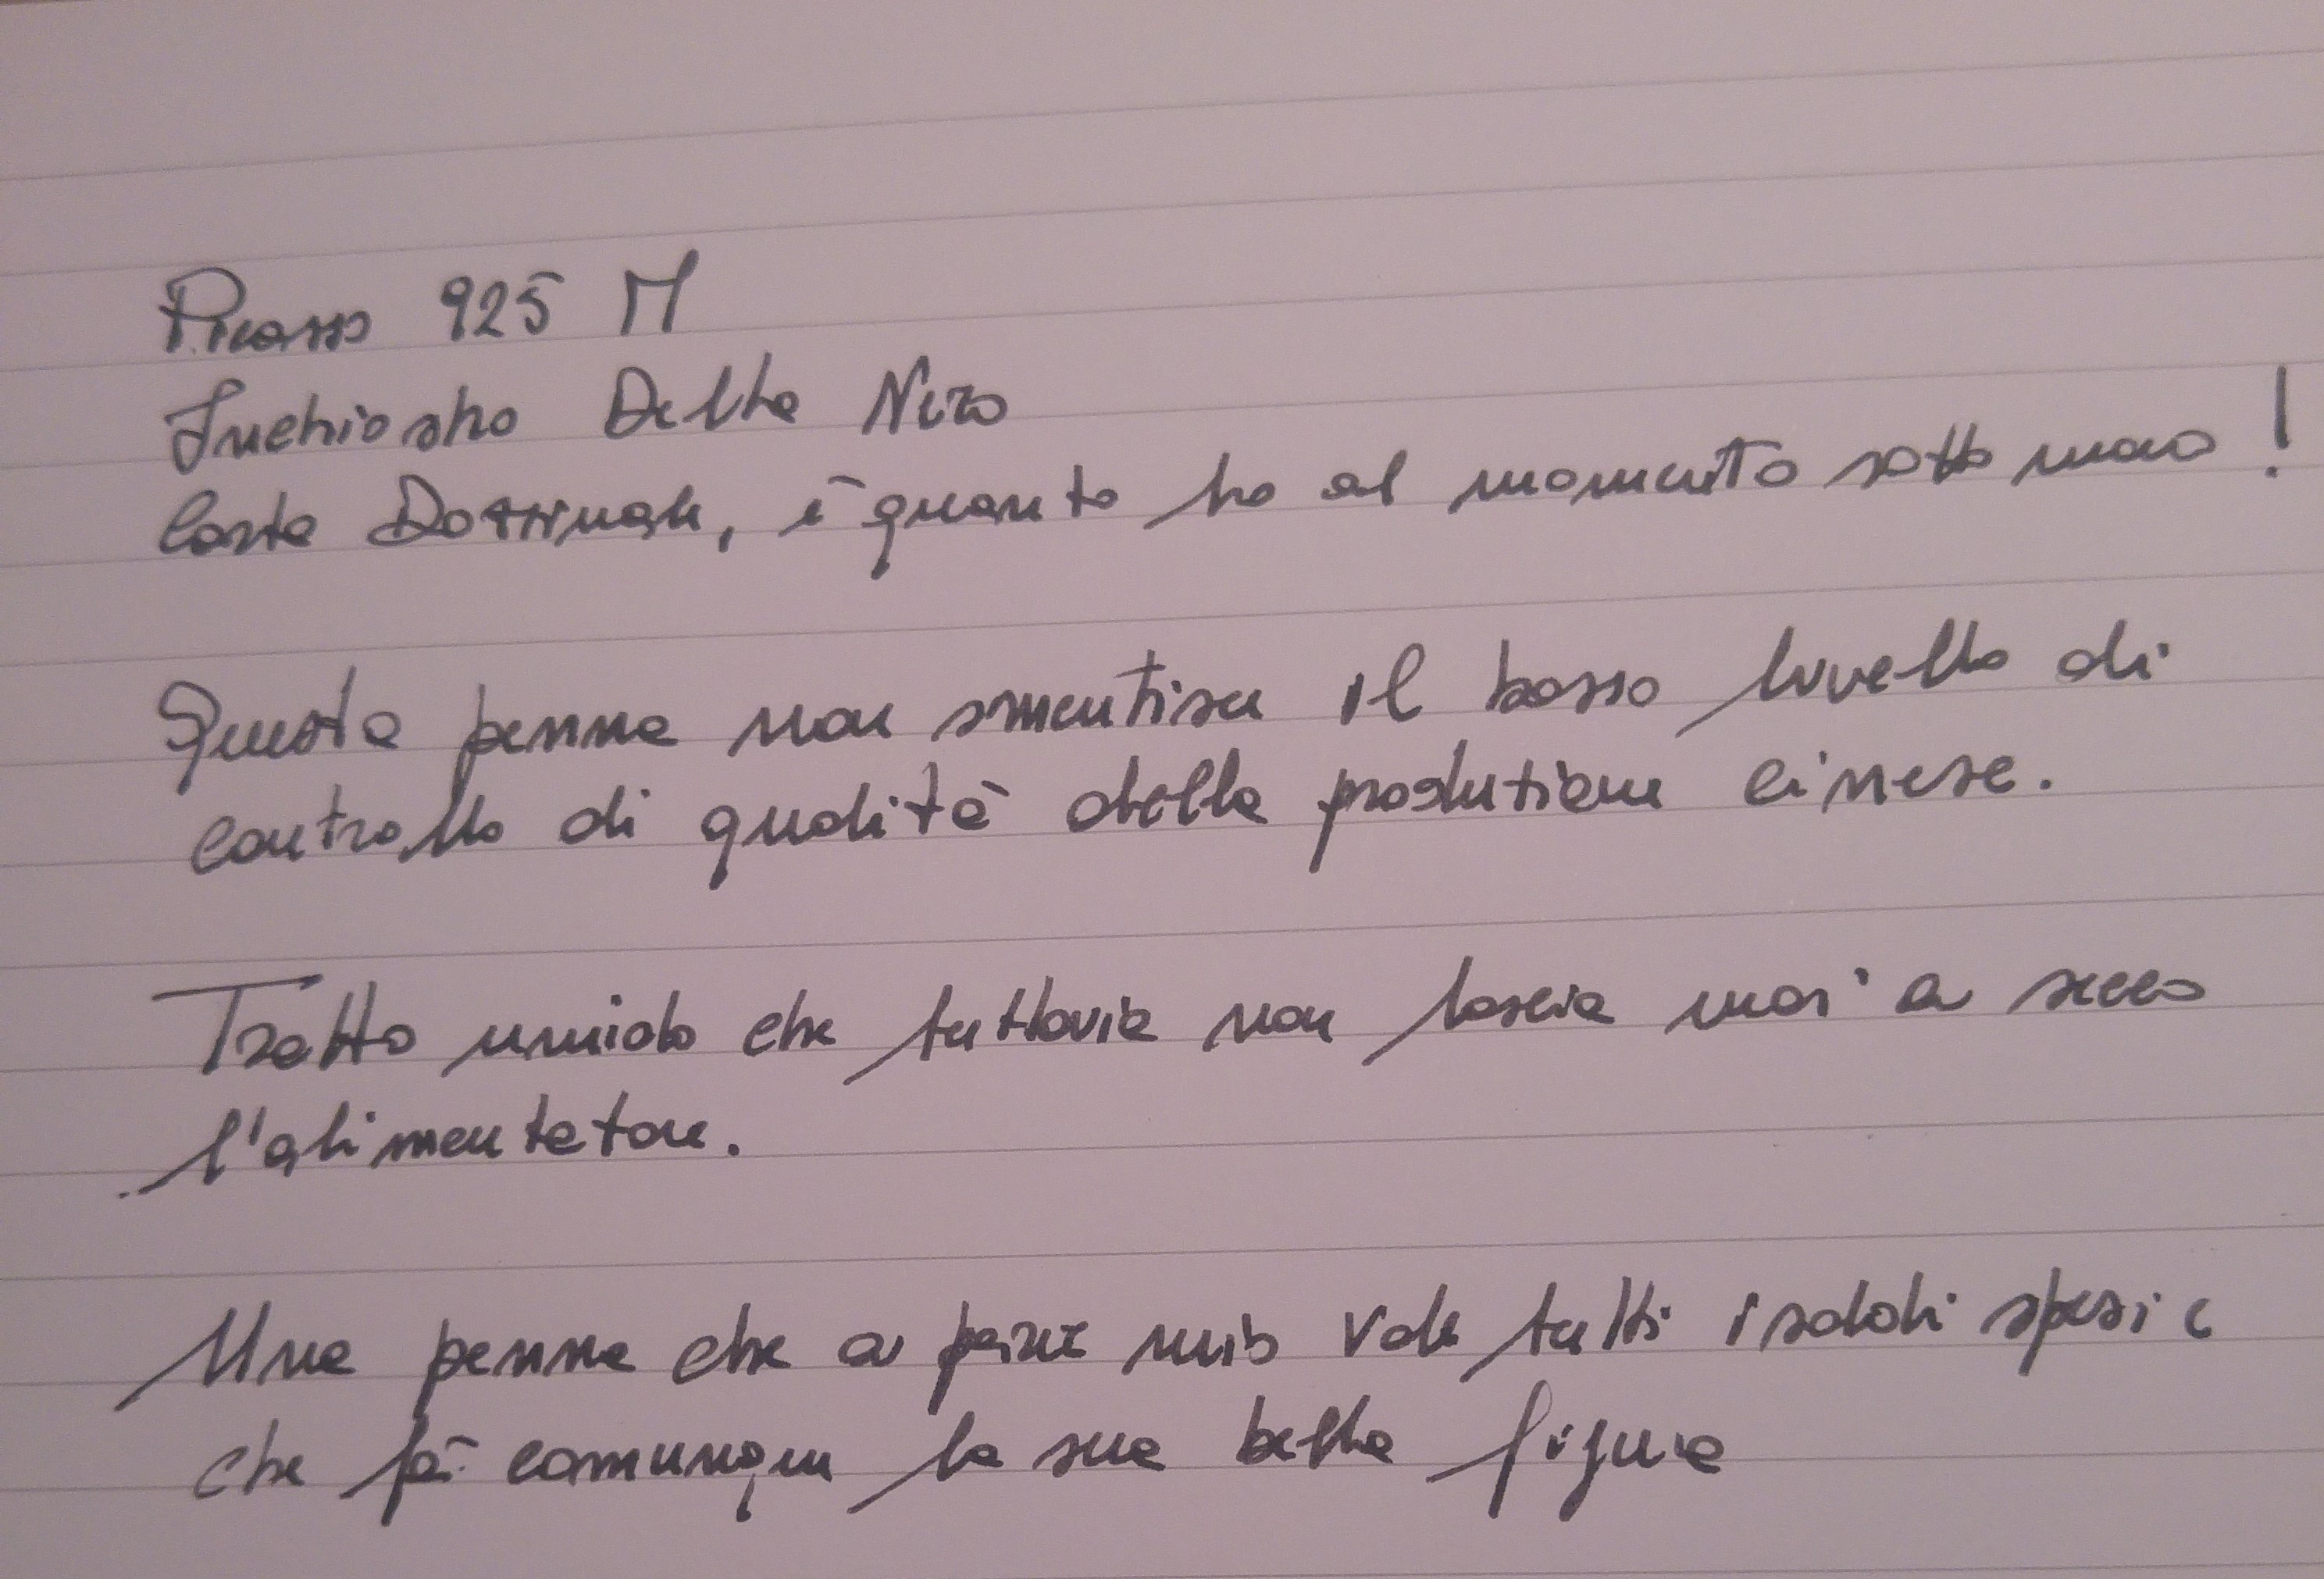 Picasso 925 M
Inchiostro Delta Nero
Carta Dozzinale, è quanto ho al momento sotto mano!
Questa penna non smentisce il basso livello di
controllo di qualità della produzione cinese.
Tratto umido che tuttavia non lascia mai a secco
l'alimentatore.
Una penna che a parer mio vale tutti i soldi spesi e
che fà comunque la sua bella figura